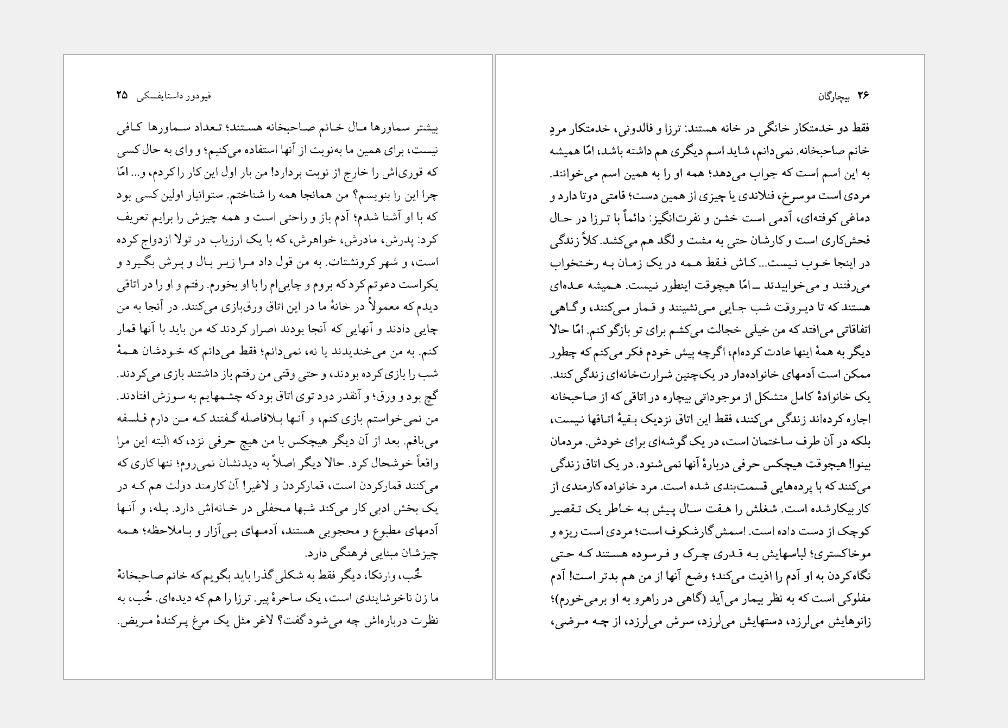 فیودور داستایفسکی ۲۵
بیشتر سماورها مال خانم صاحبخانه هستند؛ تعداد سماورها کافی
نیست، برای همین ما به‌نوبت از آنها استفاده می‌کنیم؛ و وای به حال کسی
که قوری‌اش را خارج از نوبت بردارد! من بار اول این کار را کردم، و... امّا
چرا این را بنویسم؟ من همانجا همه را شناختم. ستوانیار اولین کسی بود
که با او آشنا شدم؛ آدم باز و راحتی است و همه چیزش را برایم تعریف
کرد: پدرش، مادرش، خواهرش، که با یک ارزیاب در تولا ازدواج کرده
است، و شهر کرونشتات. به من قول داد مرا زیر بال و پرش بگیرد و
یکراست دعوتم کرد که بروم و چایی‌ام را با او بخورم. رفتم و او را در اتاقی
دیدم که معمولاً در خانهٔ ما در این اتاق ورق‌بازی می‌کنند. در آنجا به من
چایی دادند و آنهایی که آنجا بودند اصرار کردند که من باید با آنها قمار
کنم. به من می‌خندیدند یا نه، نمی‌دانم؛ فقط می‌دانم که خودشان همهٔ
شب را بازی کرده بودند، و حتی وقتی من رفتم باز داشتند بازی می‌کردند.
گچ بود و ورق؛ و آنقدر دود توی اتاق بود که چشمهایم به سوزش افتادند.
من نمی‌خواستم بازی کنم، و آنها بلافاصله گفتند که من دارم فلسفه
می‌بافم. بعد از آن دیگر هیچکس با من هیچ حرفی نزد، که البته این مرا
واقعاً خوشحال کرد. حالا دیگر اصلاً به دیدنشان نمی‌روم؛ تنها کاری که
می‌کنند قمارکردن است، قمارکردن و لاغیر! آن کارمند دولت هم که در
یک بخش ادبی کار می‌کند شبها محفلی در خانه‌اش دارد. بله، و آنها
آدمهای مطبوع و محجوبی هستند، آدمهای بی‌آزار و باملاحظه؛ همه
چیزشان مبنایی فرهنگی دارد.
خُب، وارنکا، دیگر فقط به شکلی گذرا باید بگویم که خانم صاحبخانهٔ
ما زن ناخوشایندی است، یک ساحرهٔ پیر. ترزا را هم که دیده‌ای. خُب، به
نظرت درباره‌اش چه می‌شود گفت؟ لاغر مثل یک مرغ پرکندهٔ مریض.
۲۶ بیچارگان
فقط دو خدمتکار خانگی در خانه هستند: ترزا و فالدونی، خدمتکار مردِ
خانم صاحبخانه. نمی‌دانم، شاید اسم دیگری هم داشته باشد، امّا همیشه
به این اسم است که جواب می‌دهد؛ همه او را به همین اسم می‌خوانند.
مردی است موسرخ، فنلاندی یا چیزی از همین دست؛ قامتی دوتا دارد و
دماغی کوفته‌ای، آدمی است خشن و نفرت‌انگیز: دائماً با ترزا در حال
فحش‌کاری است و کارشان حتی به مشت و لگد هم می‌کشد. کلاً زندگی
در اینجا خوب نیست... کاش فقط همه در یک زمان به رختخواب
می‌رفتند و می‌خوابیدند ــ امّا هیچوقت اینطور نیست. همیشه عده‌ای
هستند که تا دیروقت شب جایی می‌نشینند و قمار می‌کنند، و گاهی
اتفاقاتی می‌افتد که من خیلی خجالت می‌کشم برای تو بازگو کنم. امّا حالا
دیگر به همهٔ اینها عادت کرده‌ام، اگرچه پیش خودم فکر می‌کنم که چطور
ممکن است آدمهای خانواده‌دار در یک‌چنین شرارت‌خانه‌ای زندگی کنند.
یک خانوادهٔ کامل متشکل از موجوداتی بیچاره در اتاقی که از صاحبخانه
اجاره کرده‌اند زندگی می‌کنند، فقط این اتاق نزدیک بقیهٔ اتاقها نیست،
بلکه در آن طرف ساختمان است، در یک گوشه‌ای برای خودش. مردمان
بینوا! هیچوقت هیچکس حرفی دربارهٔ آنها نمی‌شنود. در یک اتاق زندگی
می‌کنند که با پرده‌هایی قسمت‌بندی شده است. مرد خانواده کارمندی از
کار بیکارشده است. شغلش را هفت سال پیش به خاطر یک تقصیر
کوچک از دست داده است. اسمش گارشکوف است؛ مردی است ریزه و
موخاکستری؛ لباسهایش به قدری چرک و فرسوده هستند که حتی
نگاه‌کردن به او آدم را اذیت می‌کند؛ وضع آنها از من هم بدتر است! آدم
مفلوکی است که به نظر بیمار می‌آید (گاهی در راهرو به او برمی‌خورم)؛
زانوهایش می‌لرزد، دستهایش می‌لرزد، سرش می‌لرزد، از چه مرضی،